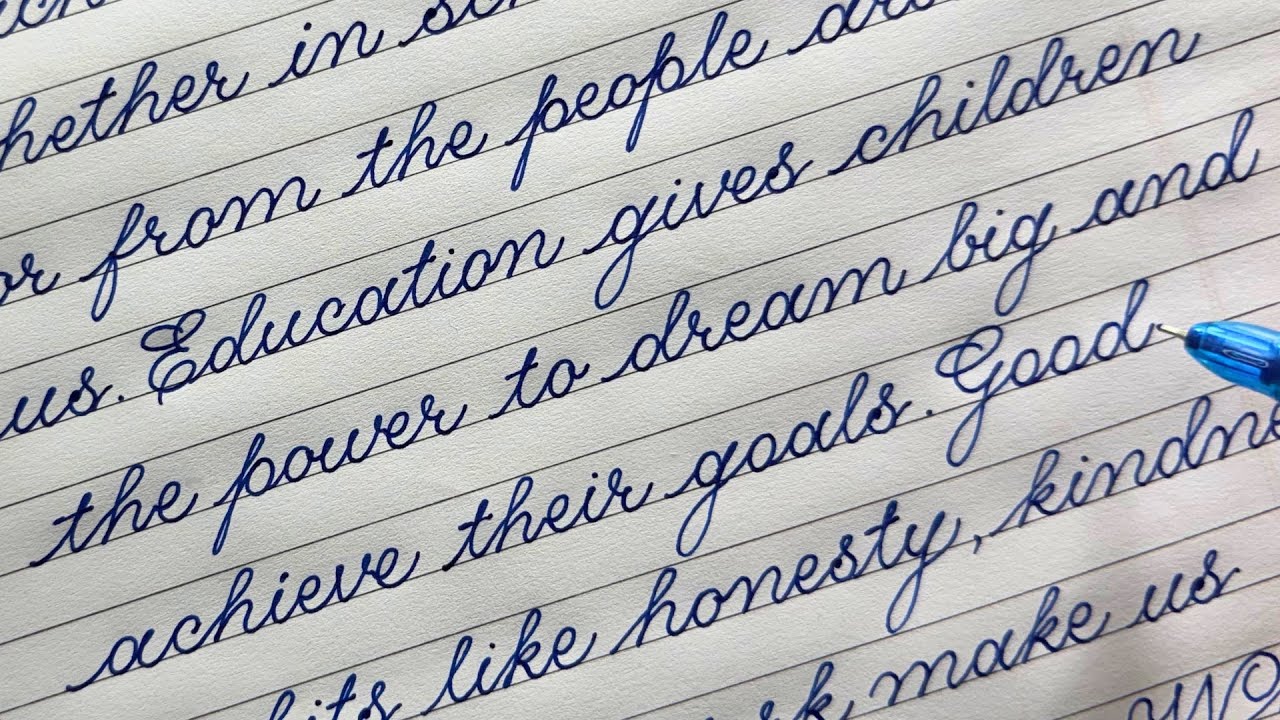 hether in
or from the people
us. Education gives children
the power to dream big and
achieve their goals. Good
like honesty, kindne
make us